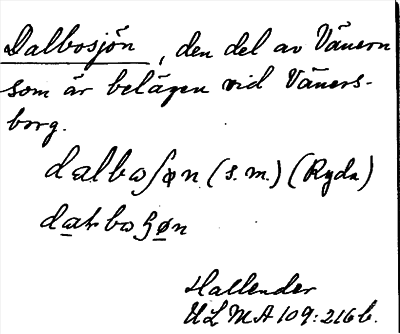 Dalbosjön, den del av Vänern
som är belägen vid Väners-
borg.
dalboʃøn (s. m.) (Ryda)
Hallender
ULMA 109:216 b.